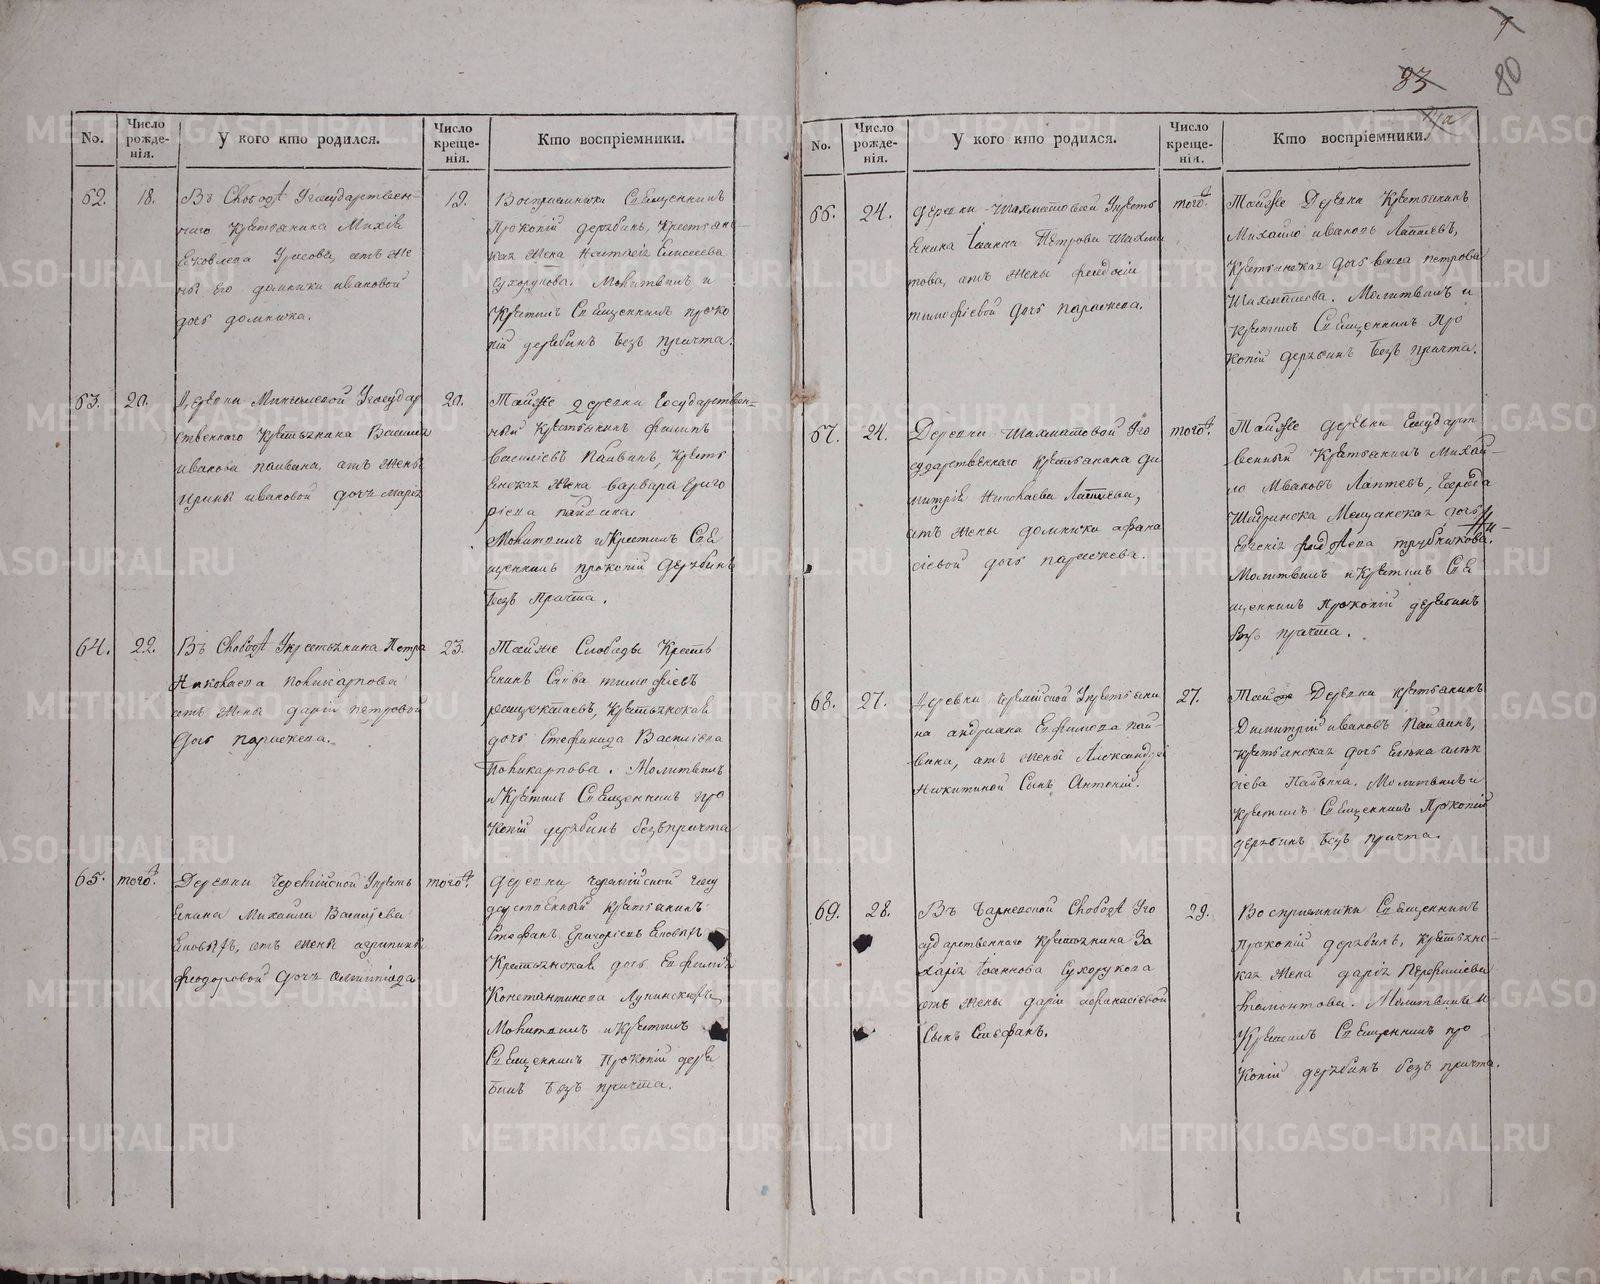 No.
Число рожде-нія.
У кого кто родился.
Число креще-нія.
Кто воспріемники.
62.
18.
Въ Слободѣ Угосударствен-
наго крестьянина
Яковлева отъ же
ны его домники ивановой
дочь домника.
19.
Воспріемники Священникъ
Прокопій дерябинъ, Крестьянс-
кая жена Елисеева
Сухорукова. Молитвилъ и
Крѣстилъ Священникъ проко
пій дерябинъ безъ причта.
63.
20.
Деревни Угосудар
ственнаго крестьянина Василія
иванова паивина, отъ жены
ирины ивановой дочь марія
20.
Тойже деревни Государствен-
ный крестьянинъ филипъ
василіевъ Паивинъ, крестьянская жена варвара григо
ріева паивина.
Молитвилъ и Крестилъ Свя
щенникъ прокопій дерябинъ
безъ Причта.
64.
22.
Въ Слободѣ Укрестьянина Петра
Николаева поликарпова
отъ жены даріи петровой
дочь параскева.
23.
Тойже Слободы Крестьянинъ Савва тимофѣевъ
крестьянская
дочь Стефанида Василіева
Поликарпова. Молитвилъ
и Крѣстилъ Священникъ про
копій дерябинъ безъ причта
65.
того.
Деревни Черемисской Укрестьянина Михайла Василіева
отъ жены агрипины
феодоровой дочь
того.
деревни черемисской госу
дарственный крестьянинъ
Стефанъ Григоріевъ
Крестьянская дочь Евфимія
Константинова
Молитвилъ и Крѣстилъ
Священникъ Прокопій деря
бинъ безъ причта.
83
80
No.
Число рожде-нія.
У кого кто родился.
Число креще-нія.
Кто воспріемники.
66.
24.
деревни Шахматовой Укрестьянина іоанна Петрова Шахма
това, отъ жены феодосіи
тимофіевой дочь параскева.
того.
Тойже Деревни Крестьянинъ
Михайло ивановъ Лаптевъ,
Крестьянская дочь васса петрова
Шахматова. Молитвилъ и
крѣстилъ Священникъ Про
копій дерябинъ безъ причта.
67.
24.
Деревни Шахматовой Уго
сударственнаго крестьянина ди
митрія Николаева Лаптева,
отъ жены домники афана
сіевой дочь параскева.
того.
Тойже деревни Государт
венный Крестьянинъ Михай-
ло Ивановъ Лаптевъ, Города
Шадринска Мещанская дочь
Евгенія федотова трубникова.
Молитвилъ и Крѣстилъ Свя
щенникъ Прокопій дерябинъ
безъ причта.
68.
27.
Деревни Черемисской Укрестьяни
на андриана Ефимова Паи-
вина, отъ жены Александры
Никитиной Сынъ Антоній.
27.
Тойже Деревни крестьянинъ
Димитрій ивановъ Паивинъ,
крестьянская дочь
сіева Паивина. Молитвилъ и
крѣстилъ Священникъ Прокопій
дерябинъ безъ причта.
69.
28.
Въ Барневской Слободѣ Уго
сударственнаго крестьянина За
харія іоаннова Сухорукова
отъ жены даріи афанасіевой
Сынъ Стефанъ.
29.
Воспріемники Священникъ
Прокопій дерябинъ, крестьянс-
кая жена дарія Перфиліева
Молитвилъ и
Крѣстилъ Священникъ про
копій дерябинъ безъ причта.
METRIKI.GASO-URAL.RU